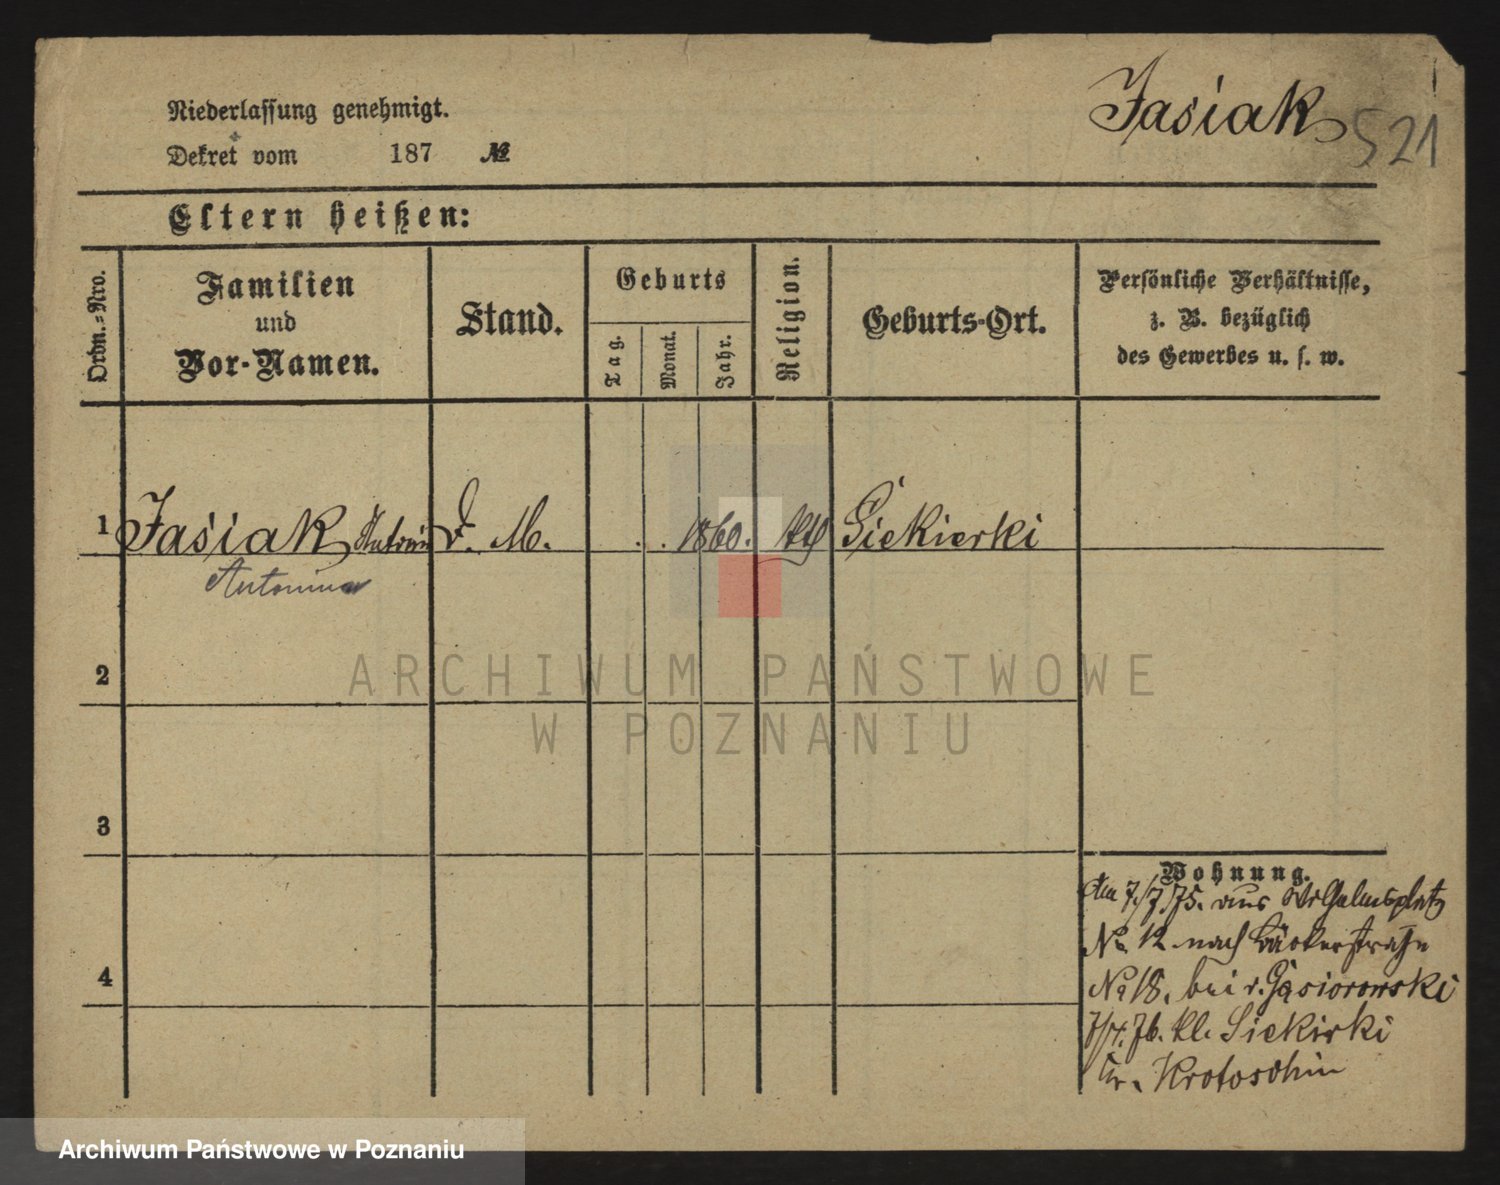 Jasiak
521
Niederlassung genehmigt.
Dekret vom 187 №
Eltern heißen:
Ordn.-Nro.
Familien
und
Vor-Namen.
Stand.
Geburts
Tag.
Monat.
Jahr.
Religion.
Geburts-Ort.
Persönliche Verhältnisse,
z. B. bezüglich
des Gewerbes u. s. w.
1 Jasiak Antonin D. M. . . 1860. kth Siekierki
Antonina
2
3
4
Wohnung.
Am 7/7 75. aus Wilhelmsplatz
No 12 nach Bäckerstraße
No 18. bei v. Gąsiorowski
7/4. 76. kl. Siekirki
Kr. Krotoschin
ARCHIWUM PAŃSTWOWE
W POZNANIU
Archiwum Państwowe w Poznaniu